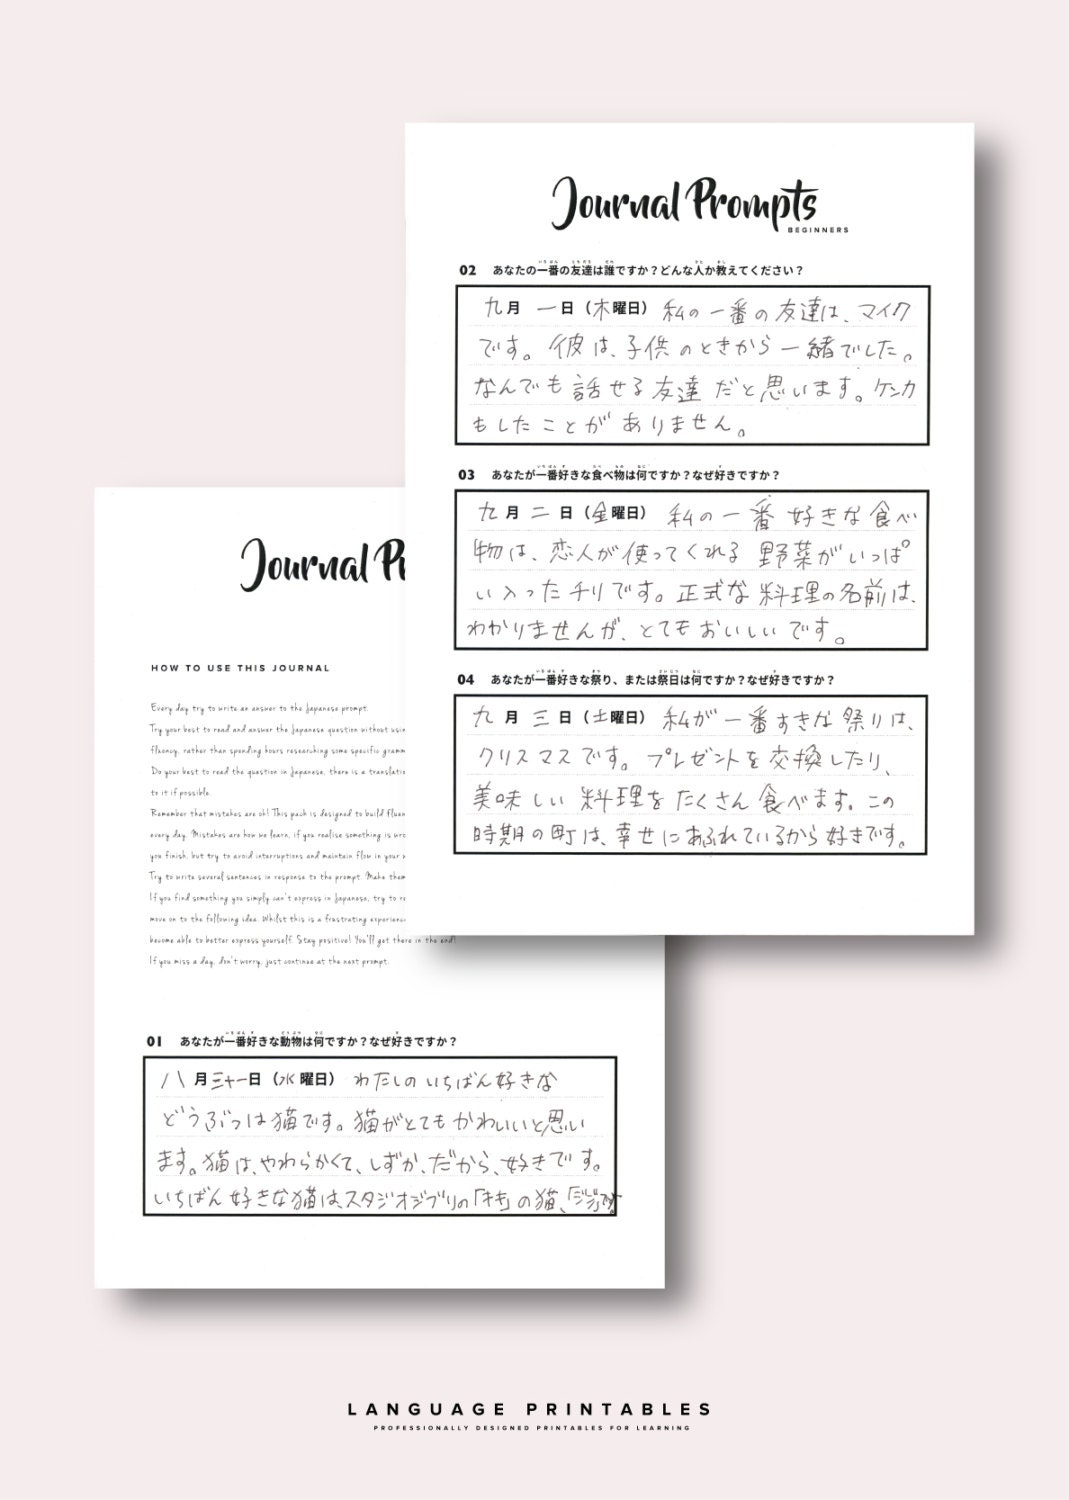 Journal Prompts
BEGINNERS
02 あなたの一番の友達は誰ですか？どんな人か教えてください？
九月 一日（木曜日） 私の一番の友達は、マイク
です。彼は、子供のときから一緒でした。
なんでも話せる友達だと思います。ケンカ
もしたことがありません。
03 あなたが一番好きな食べ物は何ですか？なぜ好きですか？
九月二日（金曜日） 私の一番好きな食べ
物は、恋人が使ってくれる野菜がいっぱ
い入ったチリです。正式な料理の名前は、
わかりませんが、とてもおいしいです。
04 あなたが一番好きな祭り、または祭日は何ですか？なぜ好きですか？
九月三日（土曜日） 私が一番すきな祭りは、
クリスマスです。プレゼントを交換したり、
美味しい料理をたくさん食べます。この
時期の町は、幸せにあふれているから好きです。
Journal Pr
HOW TO USE THIS JOURNAL
Every day try to write an answer to the Japanese prompt.
Try your best to read and answer the Japanese question without usin
fluency, rather than spending hours researching some specific gramm
Do your best to read the question in Japanese, there is a translatio
to it if possible.
Remember that mistakes are ok! This pack is designed to build fluen
every day. Mistakes are how we learn, if you realise something is wro
you finish, but try to avoid interruptions and maintain flow in your
Try to write several sentences in response to the prompt. Make them
If you find something you simply can't express in Japanese, try to re
move on to the following idea. Whilst this is a frustrating experienc
become able to better express yourself. Stay positive! You'll get there in the end!
If you miss a day, don't worry, just continue at the next prompt.
01 あなたが一番好きな動物は何ですか？なぜ好きですか？
八月三十一日（水曜日） わたしのいちばん好きな
どうぶつは猫です。猫がとてもかわいいと思い
ます。猫は、やわらかくて、しずか、だから、好きです。
いちばん好きな猫は、スタジオジブリの「キキ」の猫、「ジジ」です。
LANGUAGE PRINTABLES
PROFESSIONALLY DESIGNED PRINTABLES FOR LEARNING